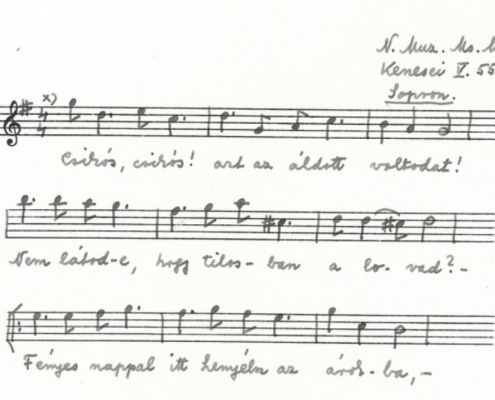 N. Muz. Ms. M
Kenesei V. 55
Sopron.
x)
Csikós, csikós! azt az áldott voltodat!
Nem látod-e, hogy tilos- ban a lo- vad? -
Fényes nappal itt henyélsz az árok- ba, -